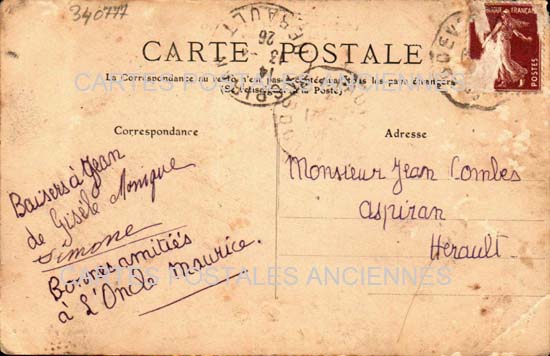 340777
CARTE POSTALE
La Correspondance au recto n'est pas acceptée par tous les pays étrangers
(Se renseigner à la Poste)
FRANÇAISE
POSTES
HERAULT
13
26
Correspondance
Adresse
Baisers à Jean
de Gisèle Monique
Simone
Bonnes amitiés
à L'Oncle Maurice.
Monsieur Jean Combes
Aspiran
Hérault.
CARTES POSTALES ANCIENNES
CARTES POSTALES ANCIENNES